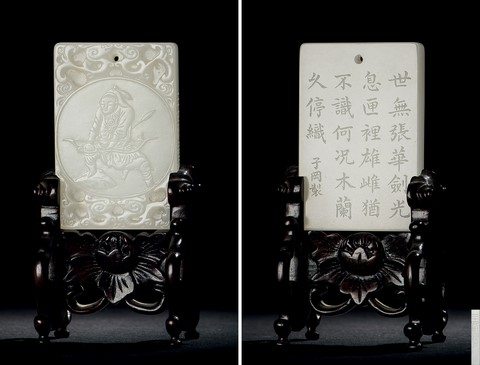 世無張華劍光
息匣裡雄雌猶
不識何況木蘭
久停織 子岡製